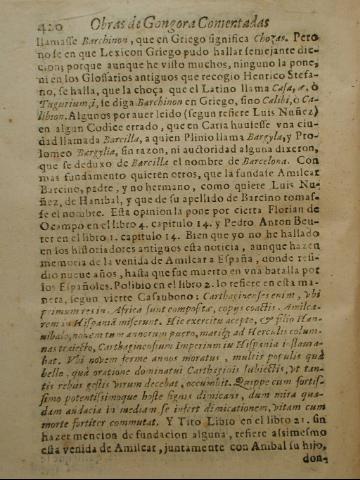 420 Obras de Gongora Comentadas
llamasse Barchinon, que en Griego significa Chozas. Pero
no se en que Lexicon Griego pudo hallar semejante dic
cion; porque aunque he visto muchos, ninguno la pone,
ni en los Glossarios antiguos que recogio Henrico Stefa-
no, se halla, que la choça que el Latino llama Casa, æ, ò
Tugurium, i, se diga Barchinon en Griego, sino Calibi, o Ca-
libion. Algunos por auer leido (segun refiere Luis Nuñez)
en algun Codice errado, que en Catia huuiesse vna ciu
dad llamada Barcilla, a quien Plinio llama Bargyla, y Pto
lomeo Bargylia, sin razon, ni auctoridad alguna dixeron,
que se deduxo de Barcilla el nombre de Barcelona. Con
mas fundamento quieren otros, que la fundasse Amilcar
Barcino, padre, y no hermano, como quiere Luis Nu-
ñez, de Hanibal, y que de su apellido de Barcino tomas-
se el nombre. Esta opinion la pone por cierta Florian de
Ocampo en el libro 4. capitulo 14. y Pedro Anton Beu-
ter en el libro 1. capitulo 14. Bien que yo no he hallado
en los historiadores antiguos esta noticia, aunque hazen
memoria de la venida de Amilcar a España, donde resi-
dio nueue años, hasta que fue muerto en vna batalla por
los Españoles. Polibio en el libro 2. lo refiere en esta ma
nera, segun vierte Casaubono: Carthaginenses enim, vbi
primum res in Africa sunt compositæ, copijs coactis, Amilca-
rem in Hispaniã miserunt. Hic exercitu accepto, & filio Han-
nibale, nouem tum annorum puero, mari ad Herculis colum-
nas traiecto, Carthaginensium Imperium in Hispania instaura-
bat. Vbi nouem ferme annos moratus, multis populis quã
bello, quã oratione dominatui Carthaginis subiectis, vt tan-
tis rebus gestis virum decebat, occumbit. Quippe cum fortis-
simo potentissimoque hoste signis dimicans, dum mira qua-
dam audacia in mediam se infert dimicationem, vitam cum
morte fortiter commutat. Y Tito Libio en el libro 21. sin
hazer mencion de fundacion alguna, refiere assimesmo
esta venida de Amilcar, juntamente con Anibal su hijo,
don-